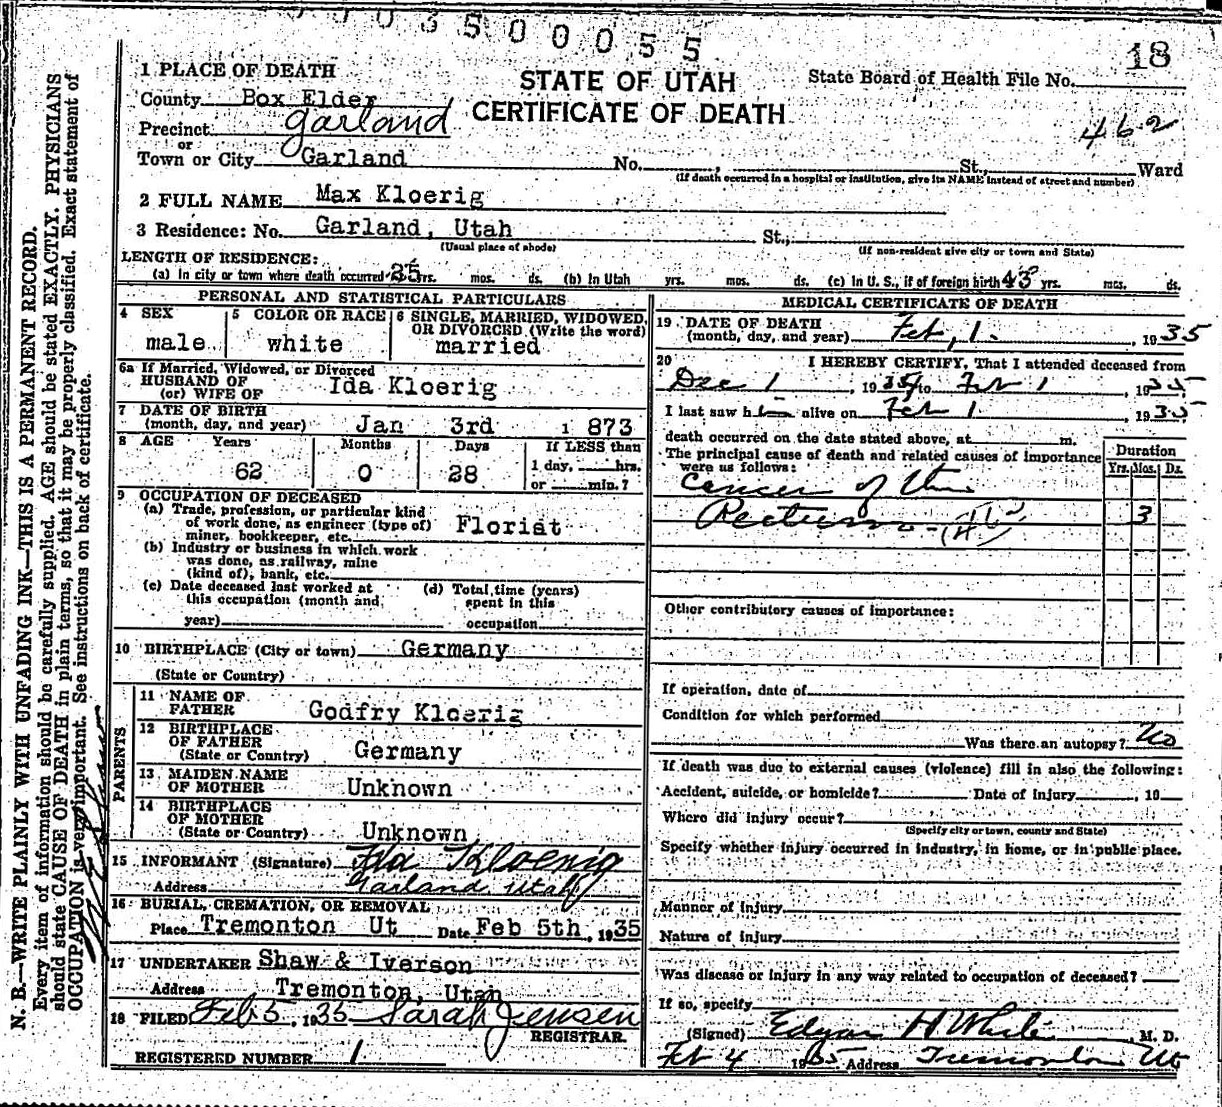 00035000055
18
1 PLACE OF DEATH
STATE OF UTAH
State Board of Health File No.
County Box Elder
CERTIFICATE OF DEATH
Precinct Garland
462
or
Town or City Garland No. , St., Ward
(If death occurred in a hospital or institution, give its NAME instead of street and number)
2 FULL NAME Max Kloerig
3 Residence: No. Garland, Utah St.,
(Usual place of abode) (If non-resident give city or town and State)
LENGTH OF RESIDENCE:
(a) In city or town where death occurred 35 yrs. mos. ds. (b) In Utah yrs. mos. ds. (c) In U. S., if of foreign birth 43 yrs. mos. ds.
PERSONAL AND STATISTICAL PARTICULARS
4 SEX
male
5 COLOR OR RACE
white
6 SINGLE, MARRIED, WIDOWED,
OR DIVORCED (Write the word)
married
6a If Married, Widowed, or Divorced
HUSBAND OF
(or) WIFE OF Ida Kloerig
7 DATE OF BIRTH
(month, day, and year) Jan 3rd 1873
8 AGE Years Months Days If LESS than
62 0 28 1 day, hrs.
or min.?
9 OCCUPATION OF DECEASED
(a) Trade, profession, or particular kind
of work done, as engineer (type of)
miner, bookkeeper, etc. Florist
(b) Industry or business in which work
was done, as railway, mine
(kind of), bank, etc.
(c) Date deceased last worked at
this occupation (month and
year)
(d) Total time (years)
spent in this
occupation
10 BIRTHPLACE (City or town) Germany
(State or Country)
PARENTS
11 NAME OF
FATHER Godfry Kloerig
12 BIRTHPLACE
OF FATHER
(State or Country) Germany
13 MAIDEN NAME
OF MOTHER Unknown
14 BIRTHPLACE
OF MOTHER
(State or Country) Unknown
15 INFORMANT (Signature) Ida Kloerig
Address Garland Utah
16 BURIAL, CREMATION, OR REMOVAL
Place Tremonton Ut Date Feb 5th, 1935
17 UNDERTAKER Shaw & Iverson
Address Tremonton, Utah
18 FILED Feb 5, 1935 Sarah Jensen
REGISTRAR.
REGISTERED NUMBER 1
MEDICAL CERTIFICATE OF DEATH
19 DATE OF DEATH
(month, day, and year) Feb, 1. , 1935
20 I HEREBY CERTIFY, That I attended deceased from
Dec 1 , 1934 to Feb 1 , 1935
I last saw him alive on Feb 1 1935
death occurred on the date stated above, at m.
The principal cause of death and related causes of importance
were as follows:
Duration
Yrs. Mos. Ds.
Cancer of the
Rectum 3
Other contributory causes of importance:
If operation, date of
Condition for which performed
Was there an autopsy? No
If death was due to external causes (violence) fill in also the following:
Accident, suicide, or homicide? Date of injury , 19
Where did injury occur?
(Specify city or town, county and State)
Specify whether injury occurred in industry, in home, or in public place.
Manner of injury
Nature of injury
Was disease or injury in any way related to occupation of deceased?
If so, specify
(Signed) Edgar H White , M. D.
Feb 4 1935 Address Tremonton Ut
N. B.—WRITE PLAINLY WITH UNFADING INK—THIS IS A PERMANENT RECORD.
Every item of information should be carefully supplied. AGE should be stated EXACTLY. PHYSICIANS
should state CAUSE OF DEATH in plain terms, so that it may be properly classified. Exact statement of
OCCUPATION is very important. See instructions on back of certificate.